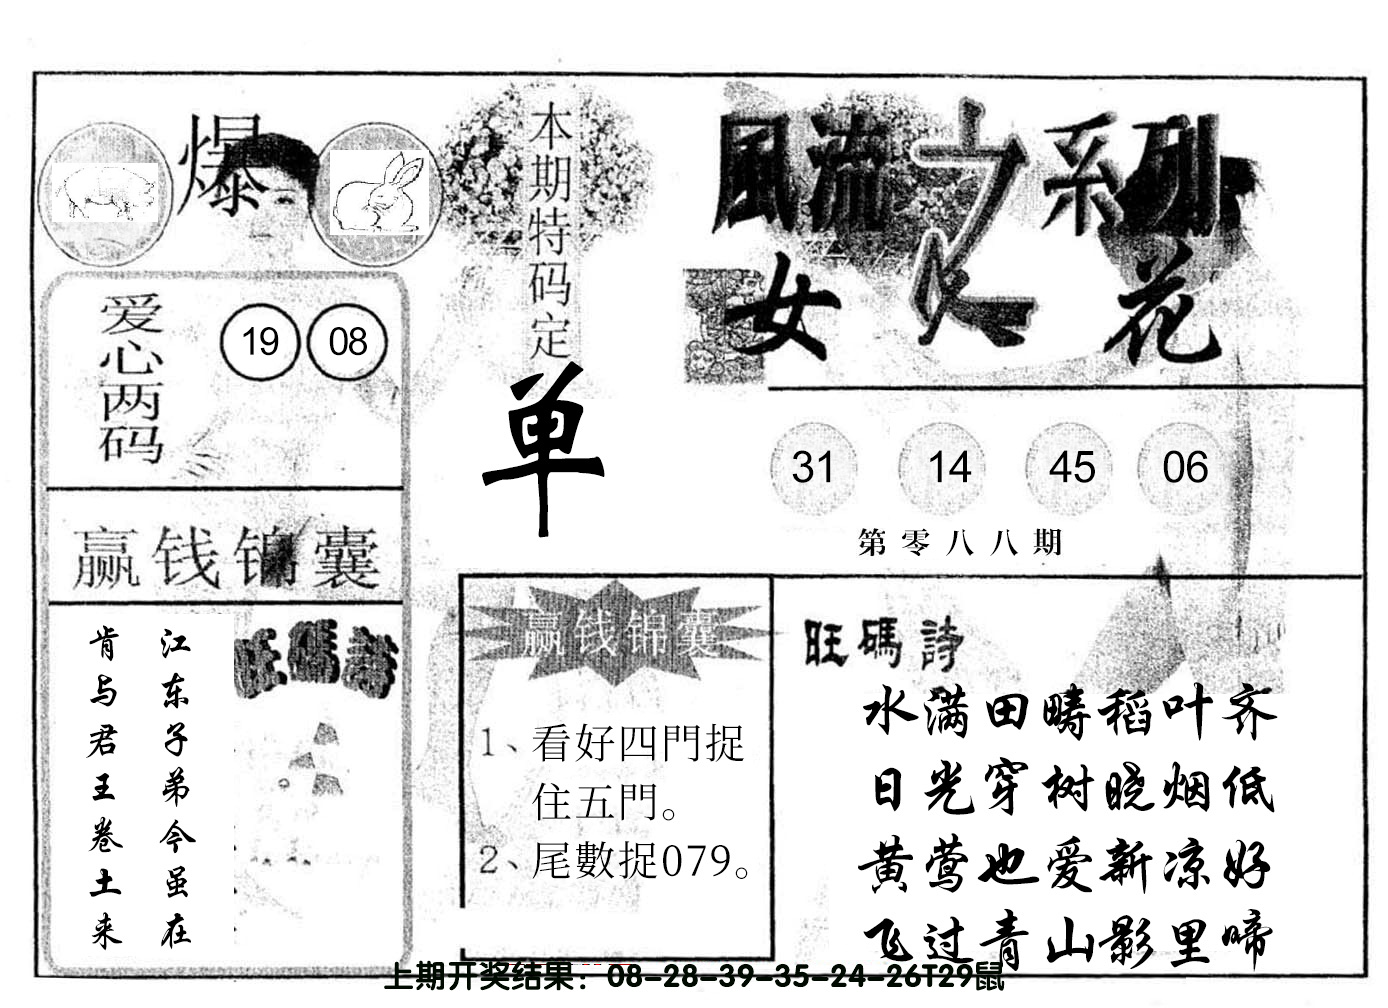 爆
本期特码定
单
風流之系列
女人花
爱心两码
19 08
31 14 45 06
第零八八期
赢钱锦囊
江东子弟今虽在
肯与君王卷土来
旺碼詩
赢钱锦囊
1、看好四門捉
住五門。
2、尾數捉079。
旺碼詩
水满田畴稻叶齐
日光穿树晓烟低
黄莺也爱新凉好
飞过青山影里啼
上期开奖结果：08-28-39-35-24-26T29鼠